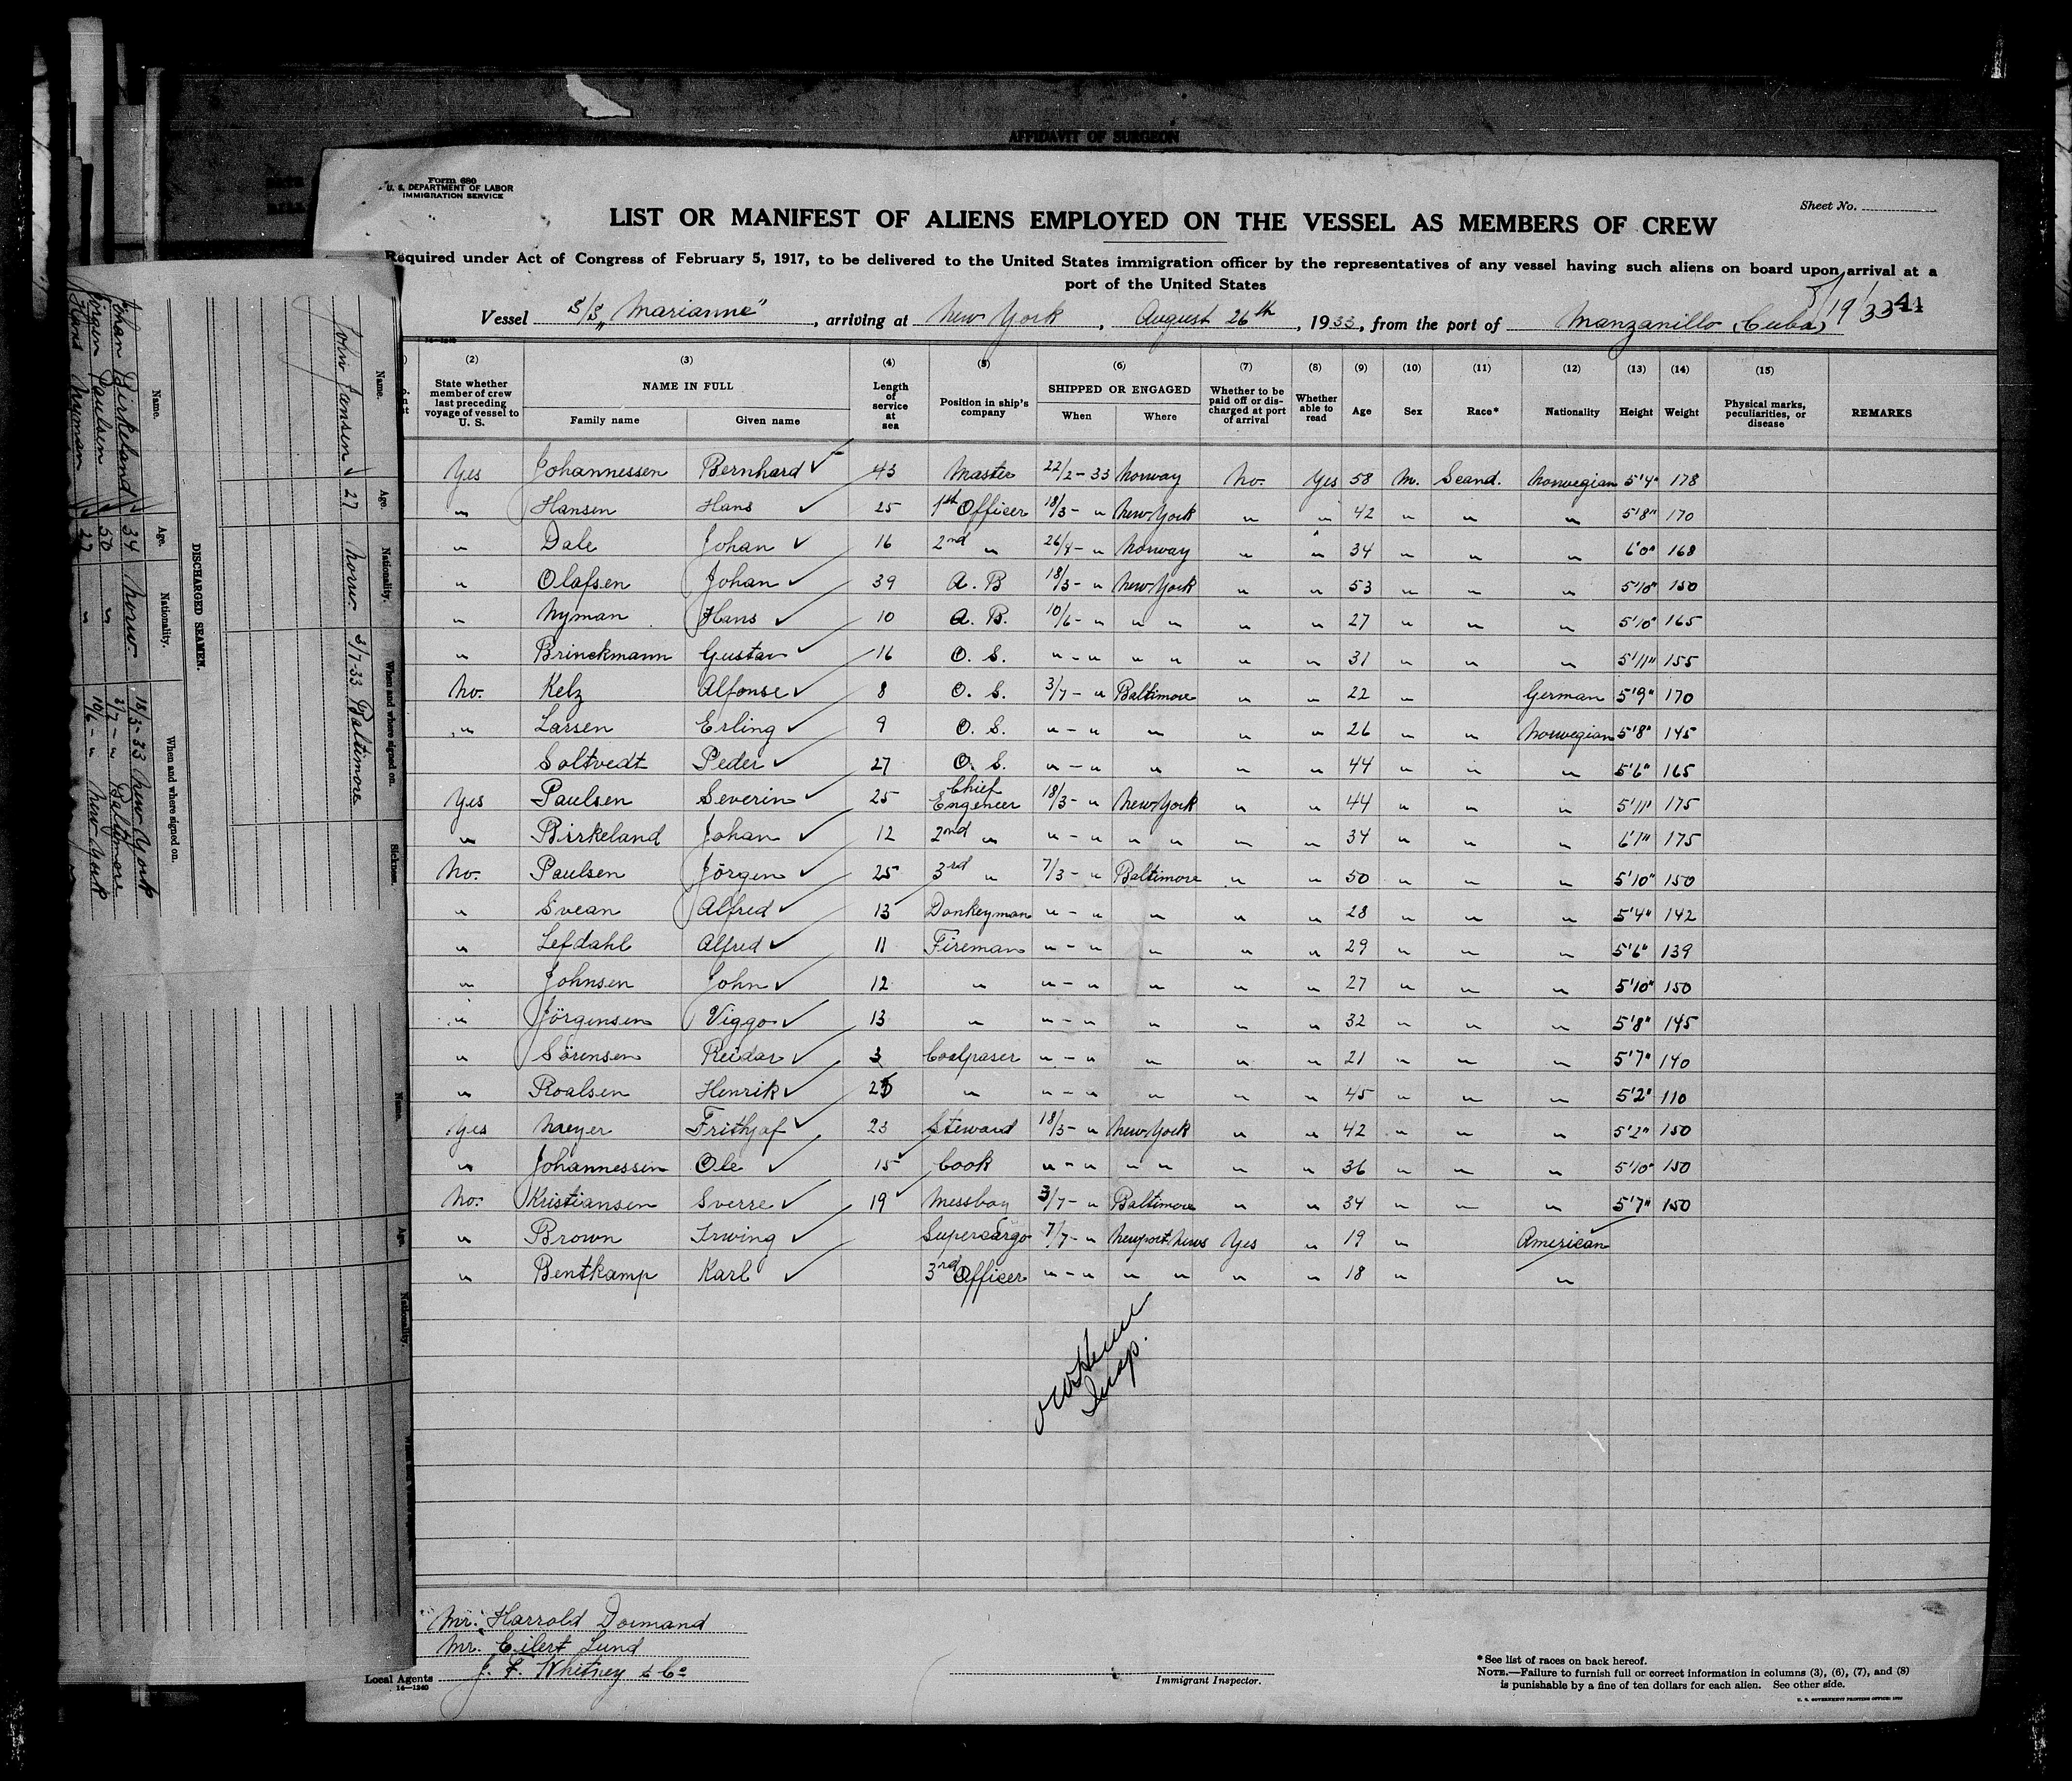 AFFIDAVIT OF SURGEON
Form 680
U. S. DEPARTMENT OF LABOR
IMMIGRATION SERVICE
Sheet No.
LIST OR MANIFEST OF ALIENS EMPLOYED ON THE VESSEL AS MEMBERS OF CREW
Required under Act of Congress of February 5, 1917, to be delivered to the United States immigration officer by the representatives of any vessel having such aliens on board upon arrival at a
port of the United States
Vessel S/S „Marianne", arriving at New York, August 26th, 1933, from the port of Manzanillo, Cuba, 8/19/33 41
(2) (3) (4) (5) (6) (7) (8) (9) (10) (11) (12) (13) (14) (15)
State whether member of crew last preceding voyage of vessel to U. S. NAME IN FULL Family name Given name Length of service at sea Position in ship's company SHIPPED OR ENGAGED When Where Whether to be paid off or discharged at port of arrival Whether able to read Age Sex Race* Nationality Height Weight Physical marks, peculiarities, or disease REMARKS
Yes Johannessen Bernhard ✓ 43 Master 22/2-33 Norway No. Yes 58 M. Scand. Norwegian 5'4" 178
" Hansen Hans ✓ 25 1th Officer 18/3- " New York " " 42 " " " 5'8" 170
" Dale Johan ✓ 16 2nd " 26/4- " Norway " " 34 " " " 6'0" 168
" Olafsen Johan ✓ 39 A. B 18/3- " New York " " 53 " " " 5'10" 150
" Nyman Hans ✓ 10 A. B. 10/6- " " " " " 27 " " " 5'10" 165
" Brinckmann Gustav ✓ 16 O. S. " - " " " " " 31 " " " 5'11" 155
No. Kelz Alfonse ✓ 8 O. S. 3/7- " Baltimore " " 22 " German 5'9" 170
" Larsen Erling ✓ 9 O. S. " - " " " " 26 " " Norwegian 5'8" 145
Soltvedt Peder ✓ 27 O. S. " - " " " " 44 " " " 5'6" 165
Yes Paulsen Severin ✓ 25 Chief Engeneer 18/3- " New York " " 44 " " " 5'11" 175
" Birkeland Johan ✓ 12 2nd " " - " " " " " 34 " " " 6'1" 175
No. Paulsen Jörgen ✓ 25 3rd " 7/3- " Baltimore " " 50 " " " 5'10" 150
" Svean Alfred ✓ 13 Donkeyman " - " " " " 28 " " " 5'4" 142
" Lefdahl Alfred ✓ 11 Fireman " - " " " " 29 " " " 5'6" 139
" Johnsen John ✓ 12 " " - " " " " 27 " " " 5'10" 150
" Jörgensen Viggo ✓ 13 " " - " " " " 32 " " " 5'8" 145
" Sörensen Reidar ✓ 3 Coalpaser " - " " " " 21 " " " 5'7" 140
" Roalsen Henrik ✓ " " - " " " " 45 " " " 5'2" 110
Yes Meyer Frithjof ✓ 23 Steward 18/3- " New York " " 42 " " " 5'2" 150
" Johannessen Ole ✓ 15 Cook " - " " " " " 36 " " " 5'10" 150
No. Kristiansen Sverre ✓ 19 Messboy 3/7- " Baltimore " " 34 " " " 5'7" 150
" Brown Irwing ✓ Supercargo 7/7- " Newport News Yes " 19 " American
" Bentkamp Karl ✓ 3rd Officer " - " " " " " 18 " "
Insp.
Mr. Harrold Dormand
Mr. Eilert Lund
Local Agents J. F. Whitney & Co
14—1240
Immigrant Inspector.
*See list of races on back hereof.
NOTE.—Failure to furnish full or correct information in columns (3), (6), (7), and (8)
is punishable by a fine of ten dollars for each alien. See other side.
U. S. GOVERNMENT PRINTING OFFICE
Name. Age. Nationality. When and where signed on. Sickness.
John Jansen 27 Norw. 3/7-33 Baltimore
DISCHARGED SEAMEN.
Name. Age. Nationality. When and where signed on.
Johan Birkeland 34 Norw. 18/3-33 New York
Jörgen Paulsen 50 " 3/7- " Baltimore
Hans Nyman 27 " 10/6- " New York
Name. Age. Nationality.